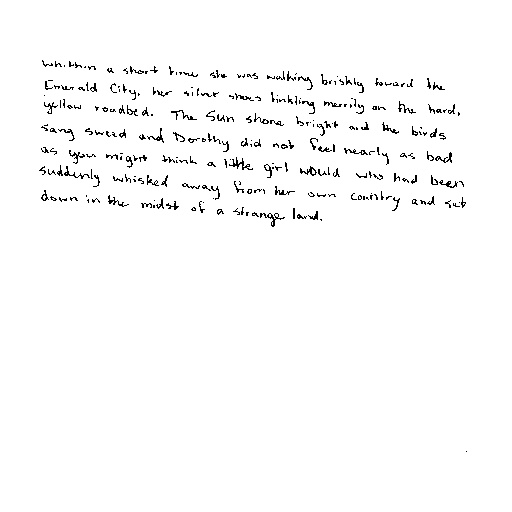 whithin a short time she was walking briskly toward the
Emerald City, her silver shoes tinkling merrily on the hard,
yellow roadbed. The Sun shone bright and the birds
sang sweed and Dorothy did not feel nearly as bad
as you might think a little girl would who had been
suddenly whisked away from her own country and set
down in the midst of a strange land.